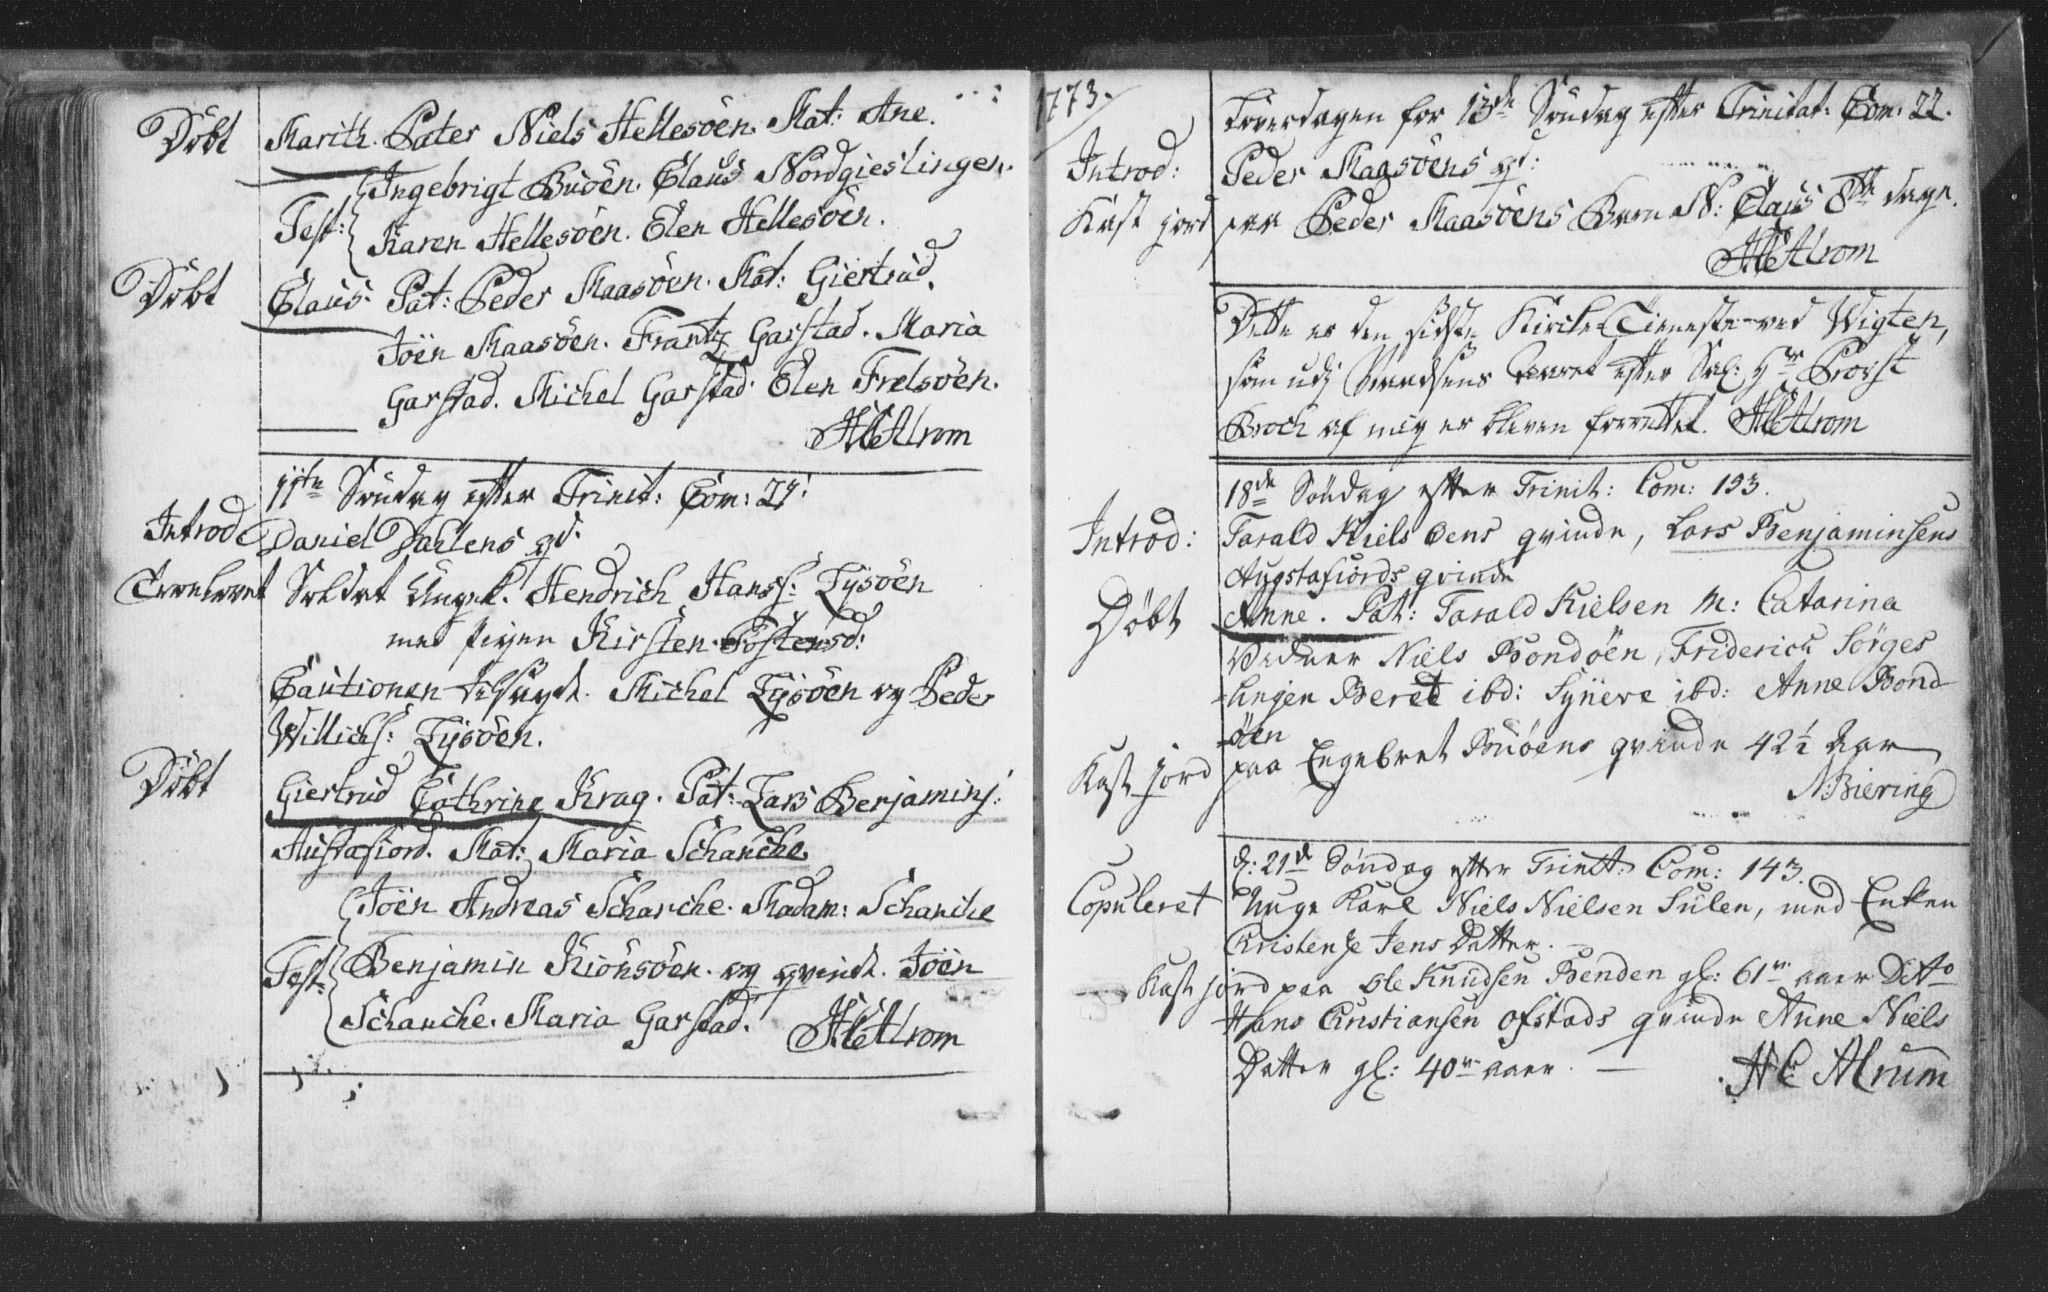 Döbt Marith. Pater Niels Hellesöen. Mat: Ane.
Ingebrigt Buöen. Claus Nordgieslingen.
Test: Karen Hellesöen. Elen Hellesöen.
Döbt Claus. Pat: Peder Maasöen. Mat: Giertrud.
Joen Maasöen. Frantz Garstad. Maria
Garstad. Michel Garstad. Elen Frelsöen.
HCAlrom
11te Söndag efter Trinit: Com: 27.
Introd Daniel Dahlens qv.
Soldat Ungk. Hendrich Hanss: Lysöen
med pigen Kirsten
Cautionen tilsagde. Michel Lysöen og Peder
Willichs: Lysöen.
Döbt Giertrud Cathrine Krag. Pat: Lars Benjamins:
Austafiord. Mat: Maria Schanche.
Joen Andreas Schanche. Madam: Schanche
Test: Benjamin Kionsöen. og qvinde. Joen
Schanche. Maria Garstad. HCAlrom
1773.
Löverdagen for 13de Söndag efter Trinitat: Com: 22.
Introd: Peder Maasöens qv:
Kast jord paa Peder Maasöens Barn N: Claus 8te dage.
HCAlrom
Dette er den sidste Kirke-Tieneste ved Wigten,
som udj efter Sal: Hr Provst
Broch af mig er bleven forrettet. HCAlrom
18de Söndag efter Trinit: Com: 193.
Introd: Tarald Kielsöens qvinde, Lars Benjaminsens
Augstafiords qvinde
Döbt Anne. Pat: Tarald Kielsen M: Catarina
Vidner Niels Bondöen, Friderich Sörges
lingen Beret ibd: Synneve ibd: Anne Bond
öen
Kast jord paa Engebret Buöens qvinde 42½ Aar
NBiering
d: 21de Söndag efter Trinit: Com: 143.
Copuleret Unge Karl Niels Nielsen Sulen, med Enken
Christense Jens Datter.
Kast jord paa Ole Knudsen Benden gl: 61 aar Ditto
Hans Christiansen Ofstads qvinde Anne Niels
Datter gl: 40 aar. HC Alrum